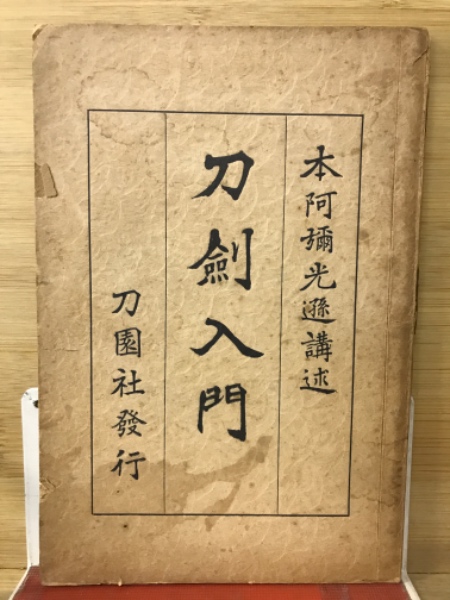 本阿彌光遜講述
刀劍入門
刀園社發行